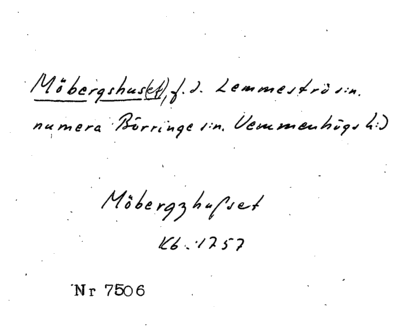 Möbergshus(et), f.d. Lemmeströ s:n.
numera Börringe s:n. Vemmenhögs h:d
Möbergzhusset
Kb. 1757
Nr 7506